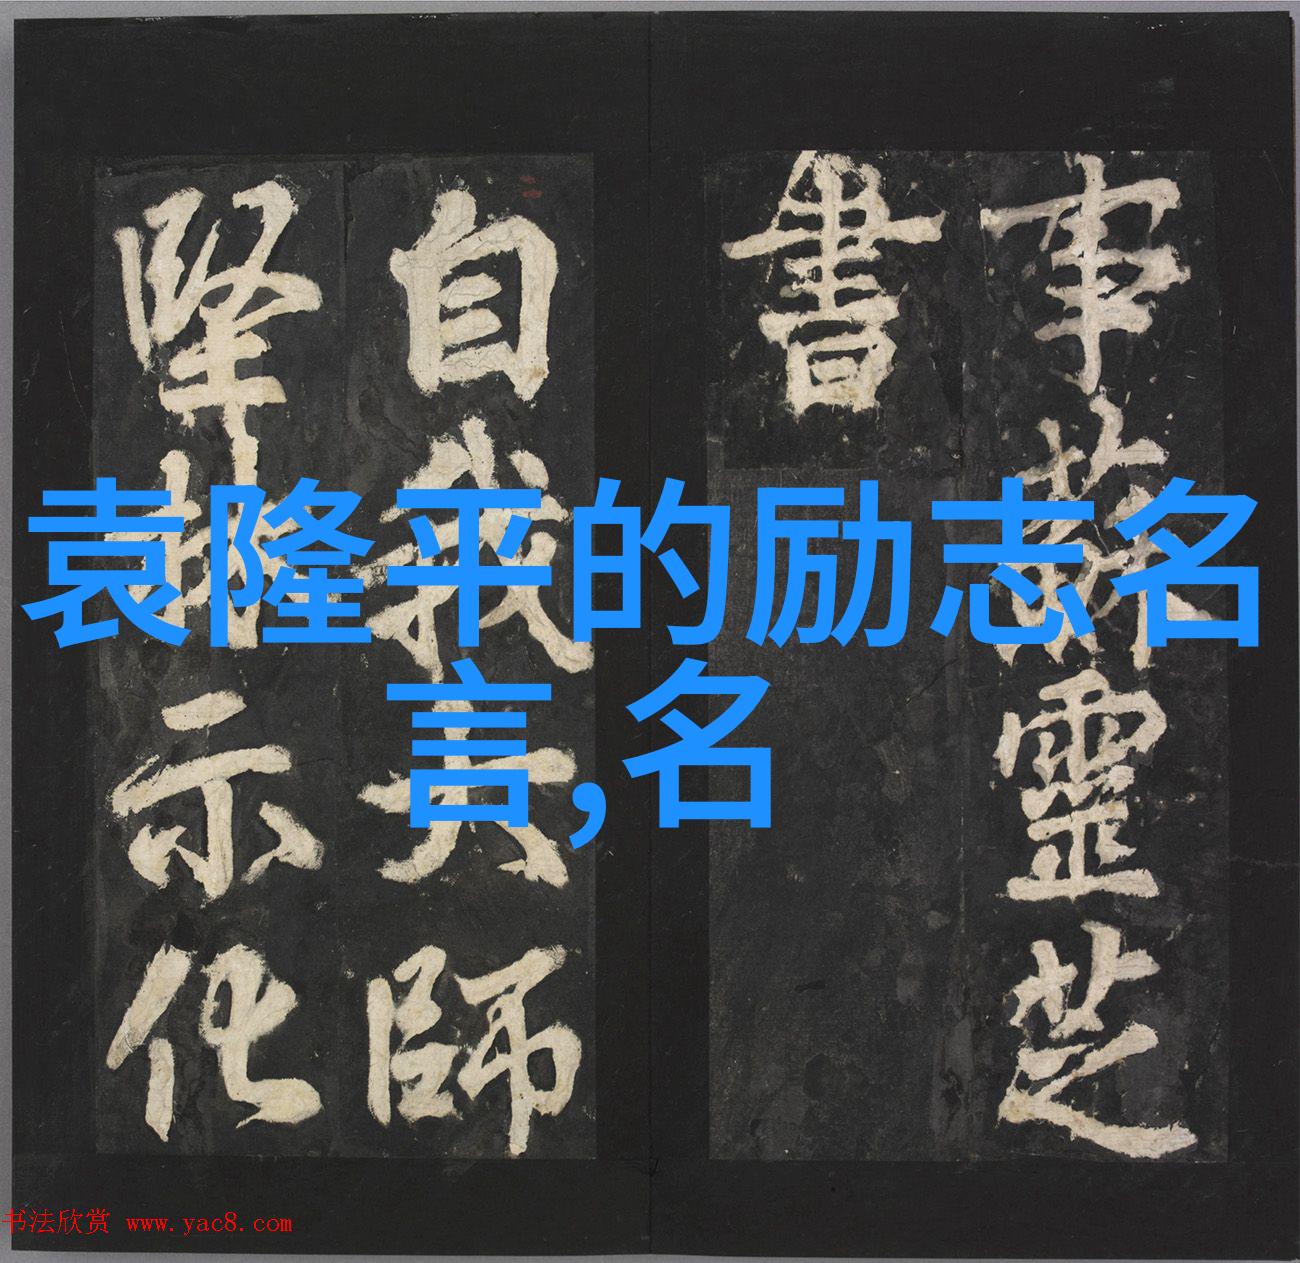 事蘇靈芝
書
自我大師
示化
袁隆平的励志名
言,名
书法欣赏 www.yac8.com